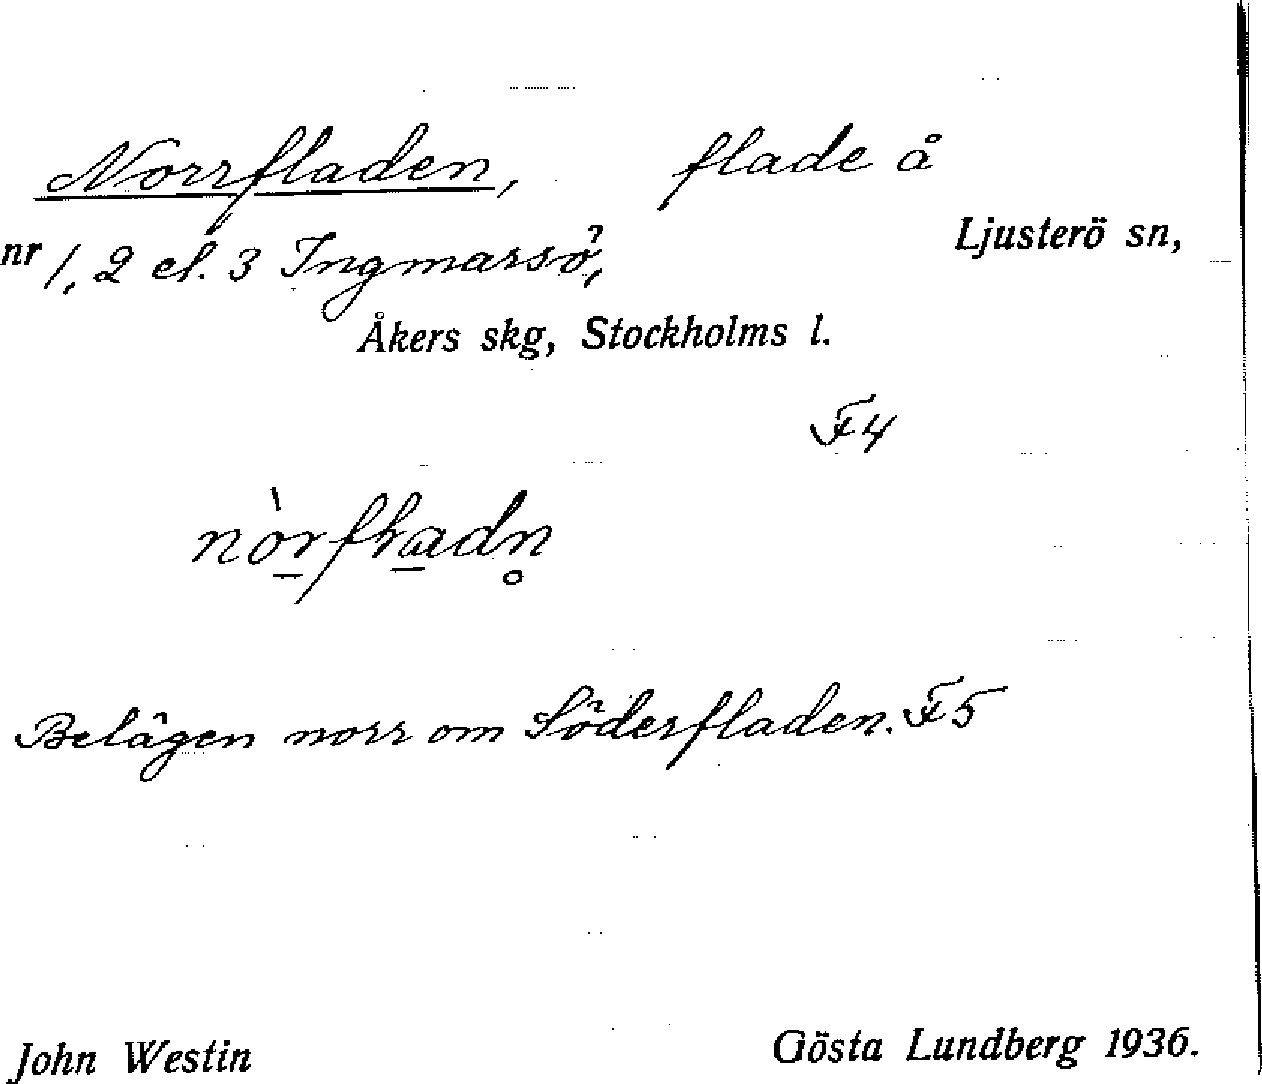 Norrfladen, flade å
nr 1, 2 el. 3 Ingmarsö, Ljusterö sn,
Åkers skg, Stockholms l.
F4
Belägen norr om Söderfladen. F5
John Westin Gösta Lundberg 1936.